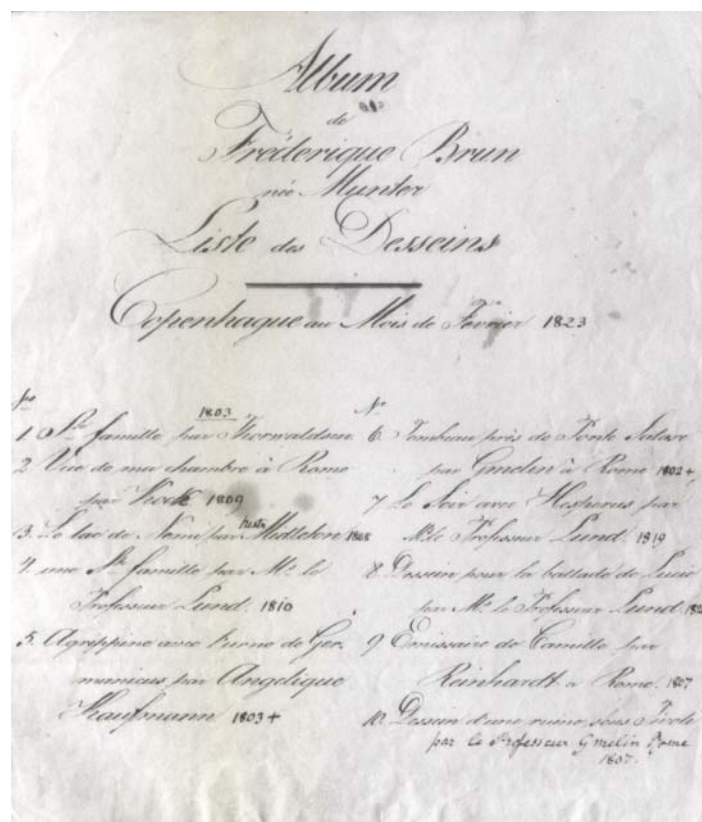 Album
de
Fréderique Brun
née Munter
Liste des Desseins
Copenhague au Mois de Fevrier 1823
No
1803
1. Ste famille par Thorwaldsen
2 Vue de ma chambre à Rome
par Koch 1809
3. Le lac de Nemi par Midleton 1808
4. une Ste famille par Mr. le
Professeur Lund. 1810
5. Agrippine avec l'urne de Ger-
manicus par Angelique
Kaufmann 1803 +
No
6 Tombeau près de Ponte Salaro
par Gmelin à Rome 1802 +
7 Le Soir avec Hesperus par
Mr le Professeur Lund. 1819
8 Dessein pour la ballade de Lucie
par Mr. le Professeur Lund.
9 Emissaire de Camille par
Reinhardt à Rome. 1807
10. Dessein d'une ruine, sous Tivoli
par le Professeur Gmelin Rome
1807.